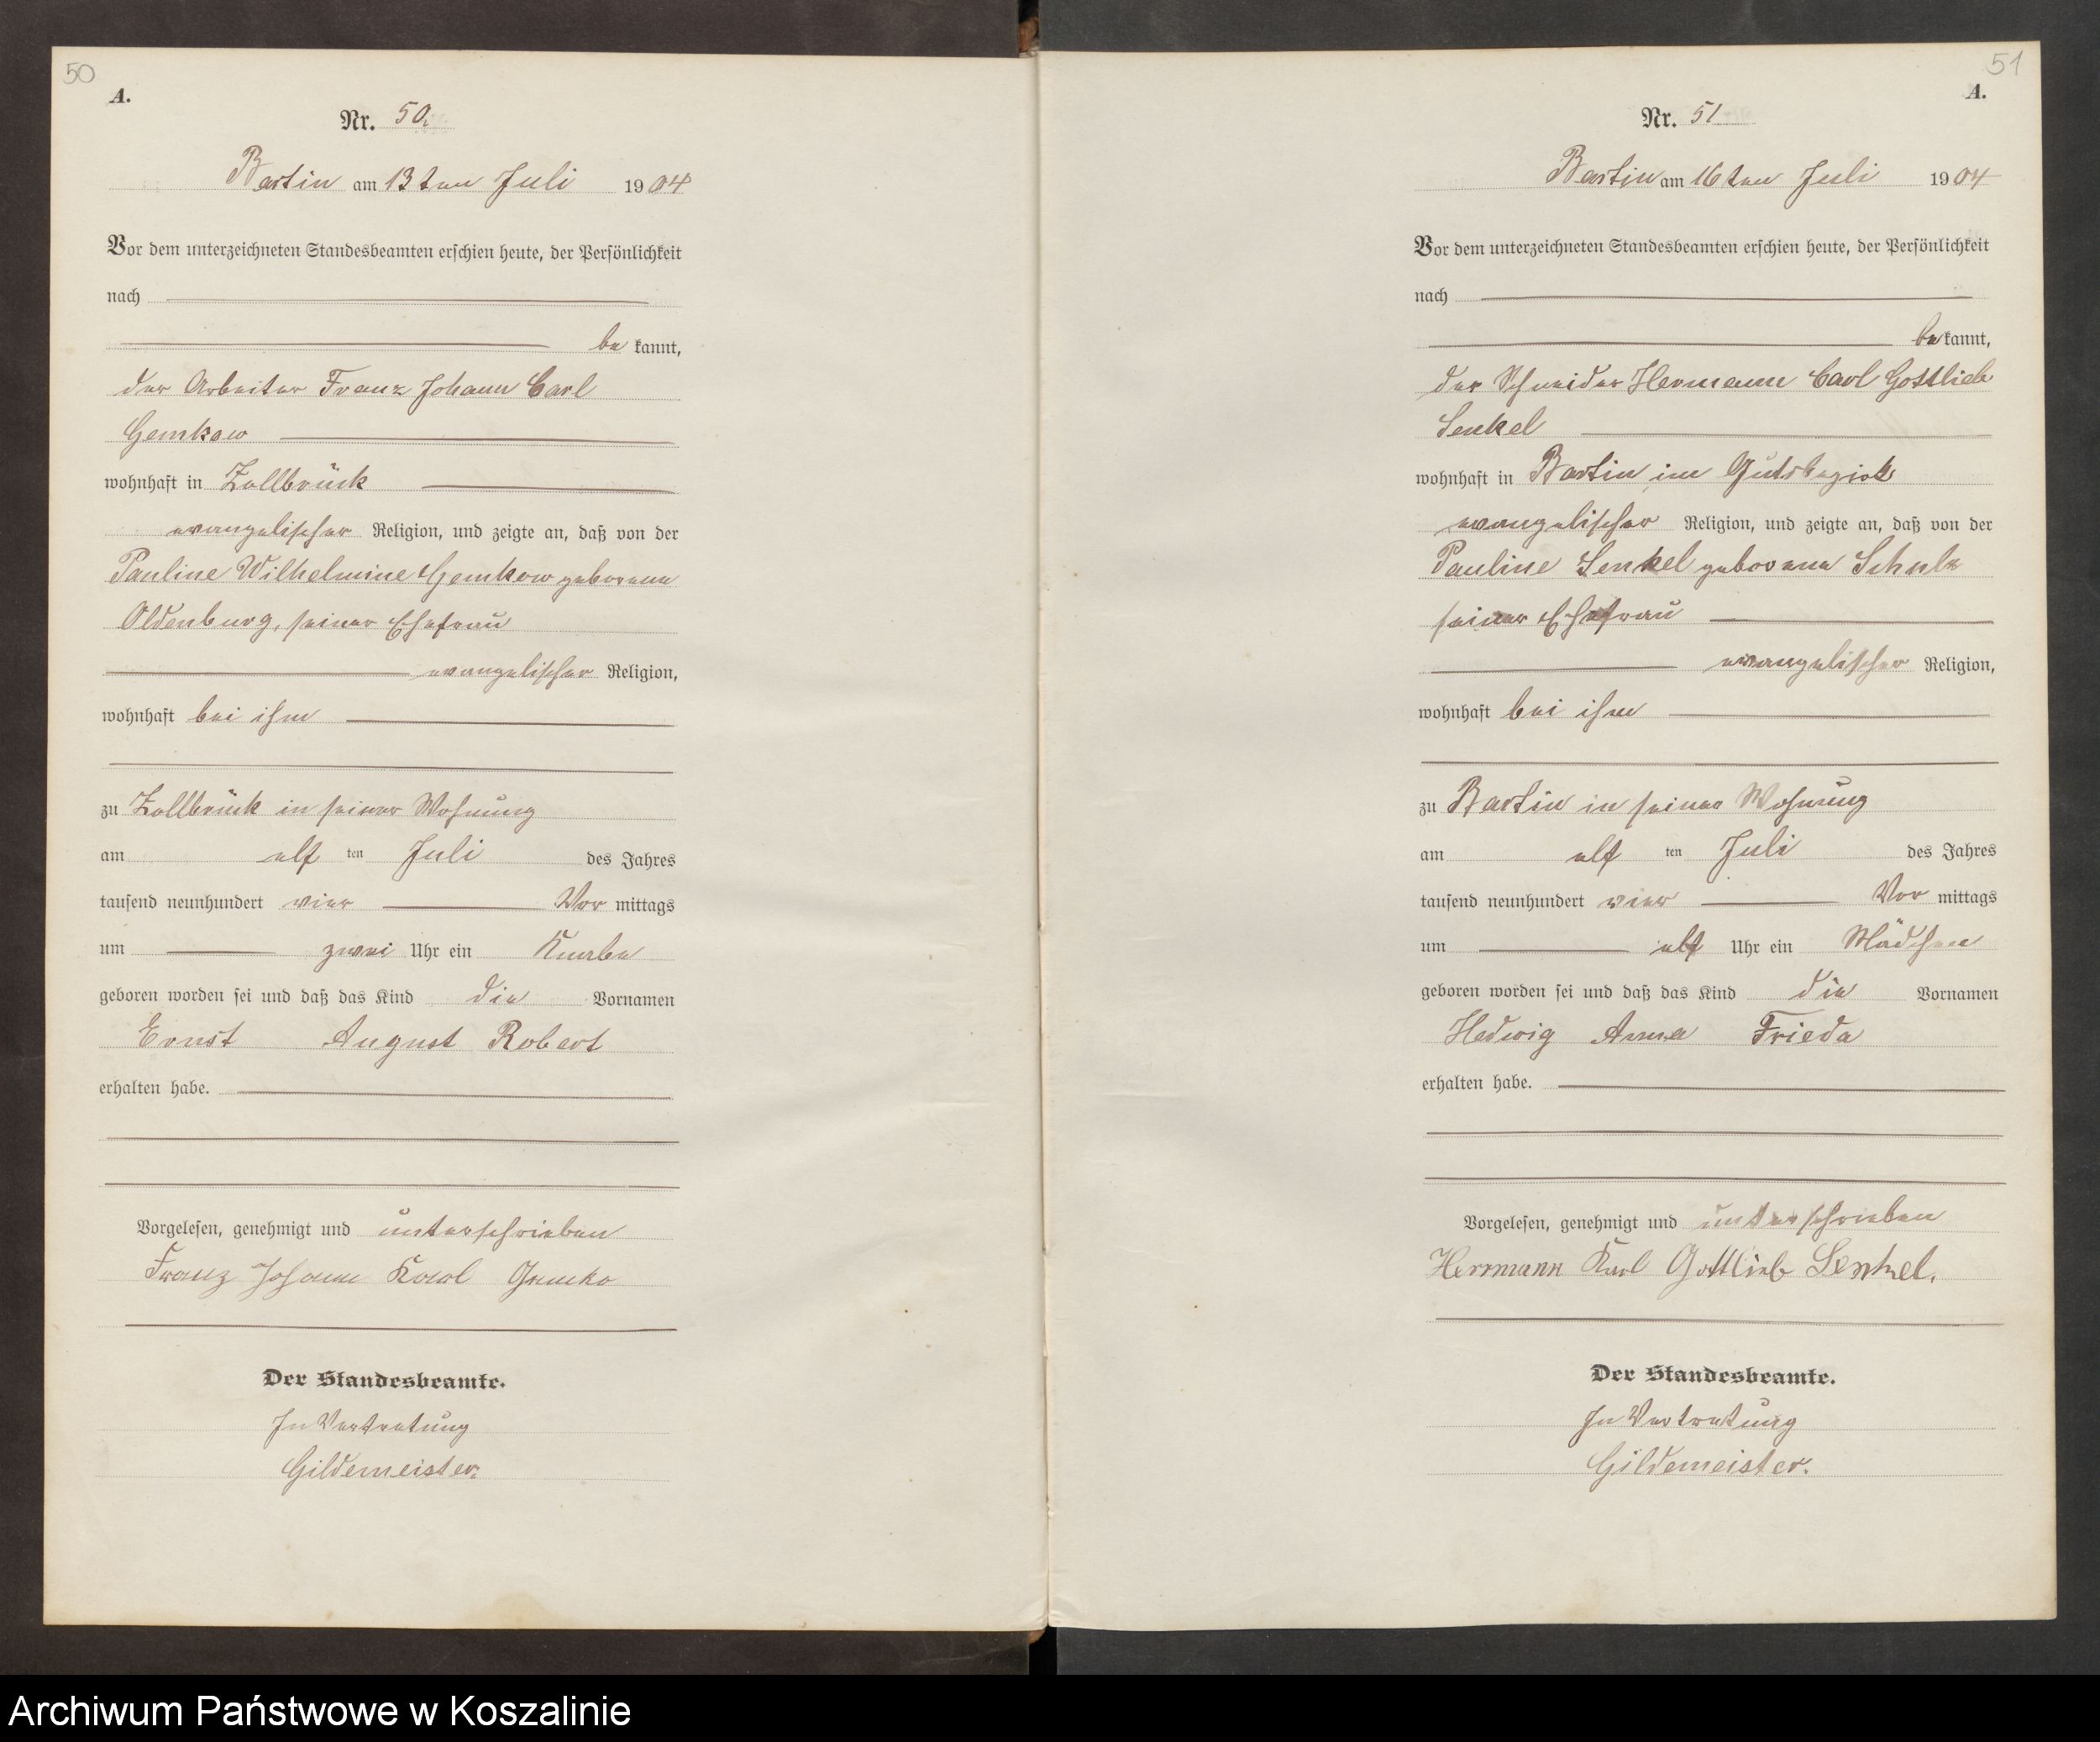 50
A.
Nr. 50.
Bartin am 13ten Juli 1904
Vor dem unterzeichneten Standesbeamten erschien heute, der Persönlichkeit
nach
be kannt,
der Arbeiter Franz Johann Carl
Gemkow
wohnhaft in Zollbrück
evangelischer Religion, und zeigte an, daß von der
Pauline Wilhelmine Gemkow geborene
Oldenburg, seiner Ehefrau
evangelischer Religion,
wohnhaft bei ihm
zu Zollbrück in seiner Wohnung
am elf ten Juli des Jahres
tausend neunhundert vier Vor mittags
um zwei Uhr ein Knabe
geboren worden sei und daß das Kind die Vornamen
Ernst August Robert
erhalten habe.
Vorgelesen, genehmigt und unterschrieben
Franz Johann Karl Gemko
Der Standesbeamte.
In Vertretung
Gildemeister.
51
A.
Nr. 51
Bartin am 16ten Juli 1904
Vor dem unterzeichneten Standesbeamten erschien heute, der Persönlichkeit
nach
be kannt,
der Schneider Hermann Carl Gottlieb
Senkel
wohnhaft in Bartin im Gutsbezirk
evangelischer Religion, und zeigte an, daß von der
Pauline Senkel geborene Schulz
seiner Ehefrau
evangelischer Religion,
wohnhaft bei ihm
zu Bartin in seiner Wohnung
am elf ten Juli des Jahres
tausend neunhundert vier Vor mittags
um elf Uhr ein Mädchen
geboren worden sei und daß das Kind die Vornamen
Hedwig Anna Frieda
erhalten habe.
Vorgelesen, genehmigt und unterschrieben
Herrmann Karl Gottlieb Senkel.
Der Standesbeamte.
In Vertretung
Gildemeister.
Archiwum Państwowe w Koszalinie